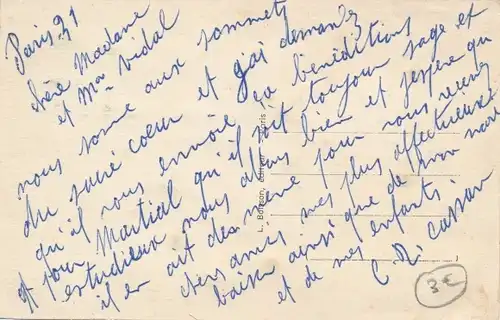 Paris 31
chère Madame
et Mr Vidal
nous some aux sommet
du sacré coeur et j'ai demandez
qu'il vous envoie sa bénéditions
et pour Martial qu'il soit toujour sage et
estudieux nous allons bien et j'espère que
il en ait des meme pour vous recevez
chers amis mes plus affectueuse
baiser ainsi que de mon mari
et de mes enfants.
C. R. Cassan
L. Buisson, éditeur Paris
3€